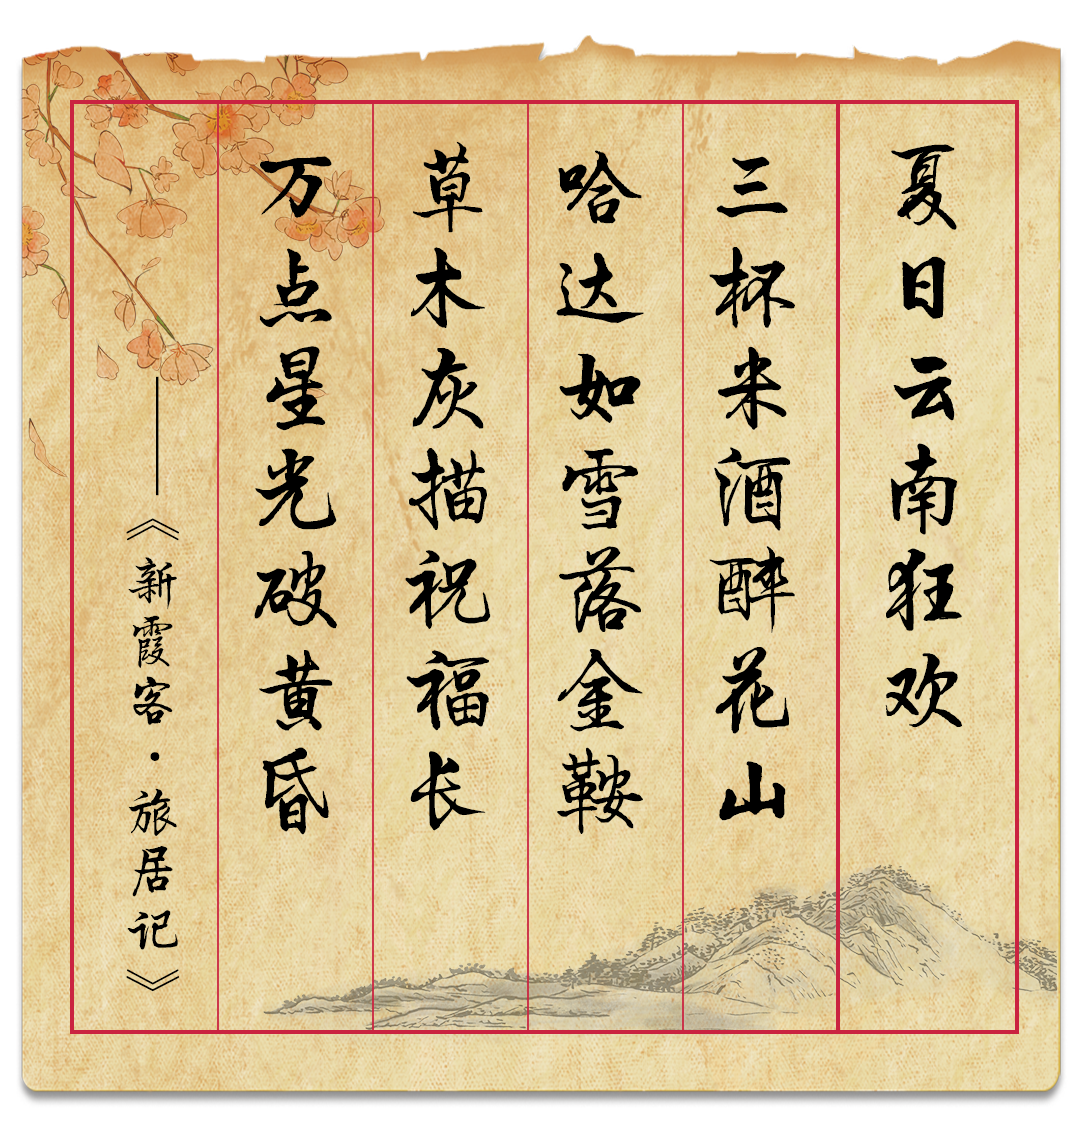 夏日云南狂欢
三杯米酒醉花山
哈达如雪落金鞍
草木灰描祝福长
万点星光破黄昏
——《新霞客·旅居记》